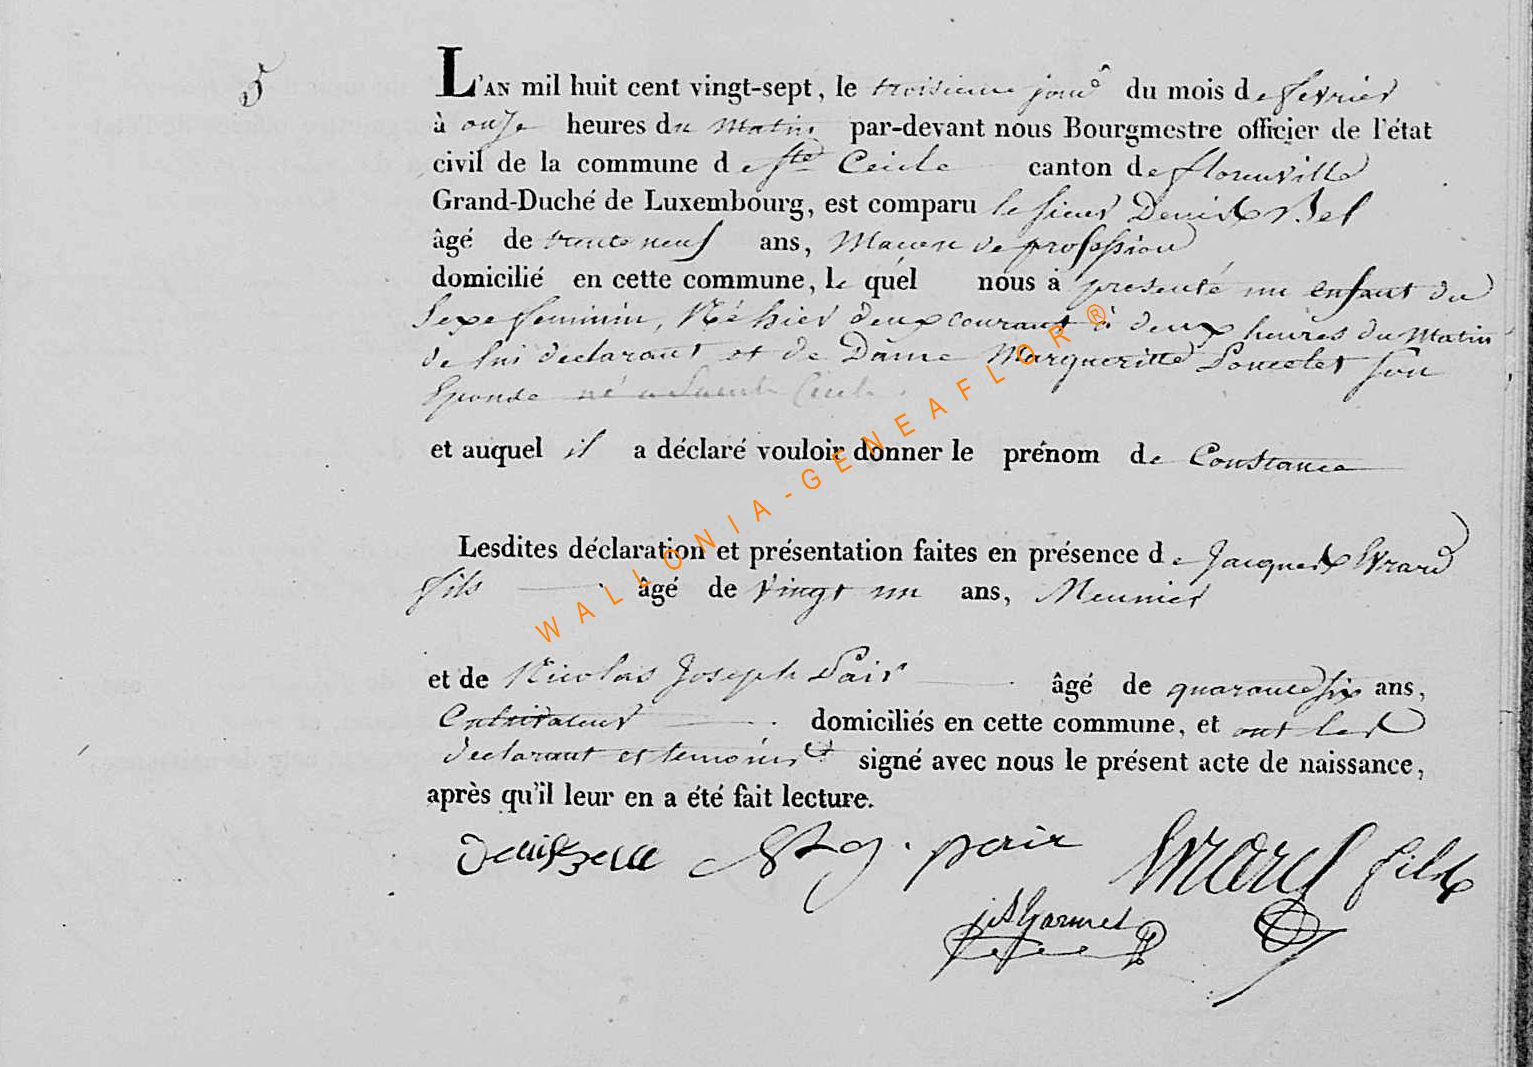 5
L'AN mil huit cent vingt-sept, le troisieme jour du mois de fevrier
à onze heures du matin par-devant nous Bourgmestre officier de l'état
civil de la commune de Ste Cecile canton de florenville
Grand-Duché de Luxembourg, est comparu le sieur Denis Bel
âgé de trente neuf ans, Macon de profession
domicilié en cette commune, le quél nous à presenté un enfant du
Sexe feminin, Né hier deux courant à deux heures du Matin
de lui declarant et de Dame Margueritte Poncelet son
Epouse né a Sainte Cecile
et auquel il a déclaré vouloir donner le prénom de Constance
Lesdites déclaration et présentation faites en présence de Jacques Evrard
fils âgé de vingt un ans, Meunier
et de Nicolas Joseph Pair âgé de quarante six ans,
Cultivateur domiciliés en cette commune, et ont les
declarant et temoins signé avec nous le présent acte de naissance,
après qu'il leur en a été fait lecture.
pair fils
WALLONIA-GENEAFLOR®